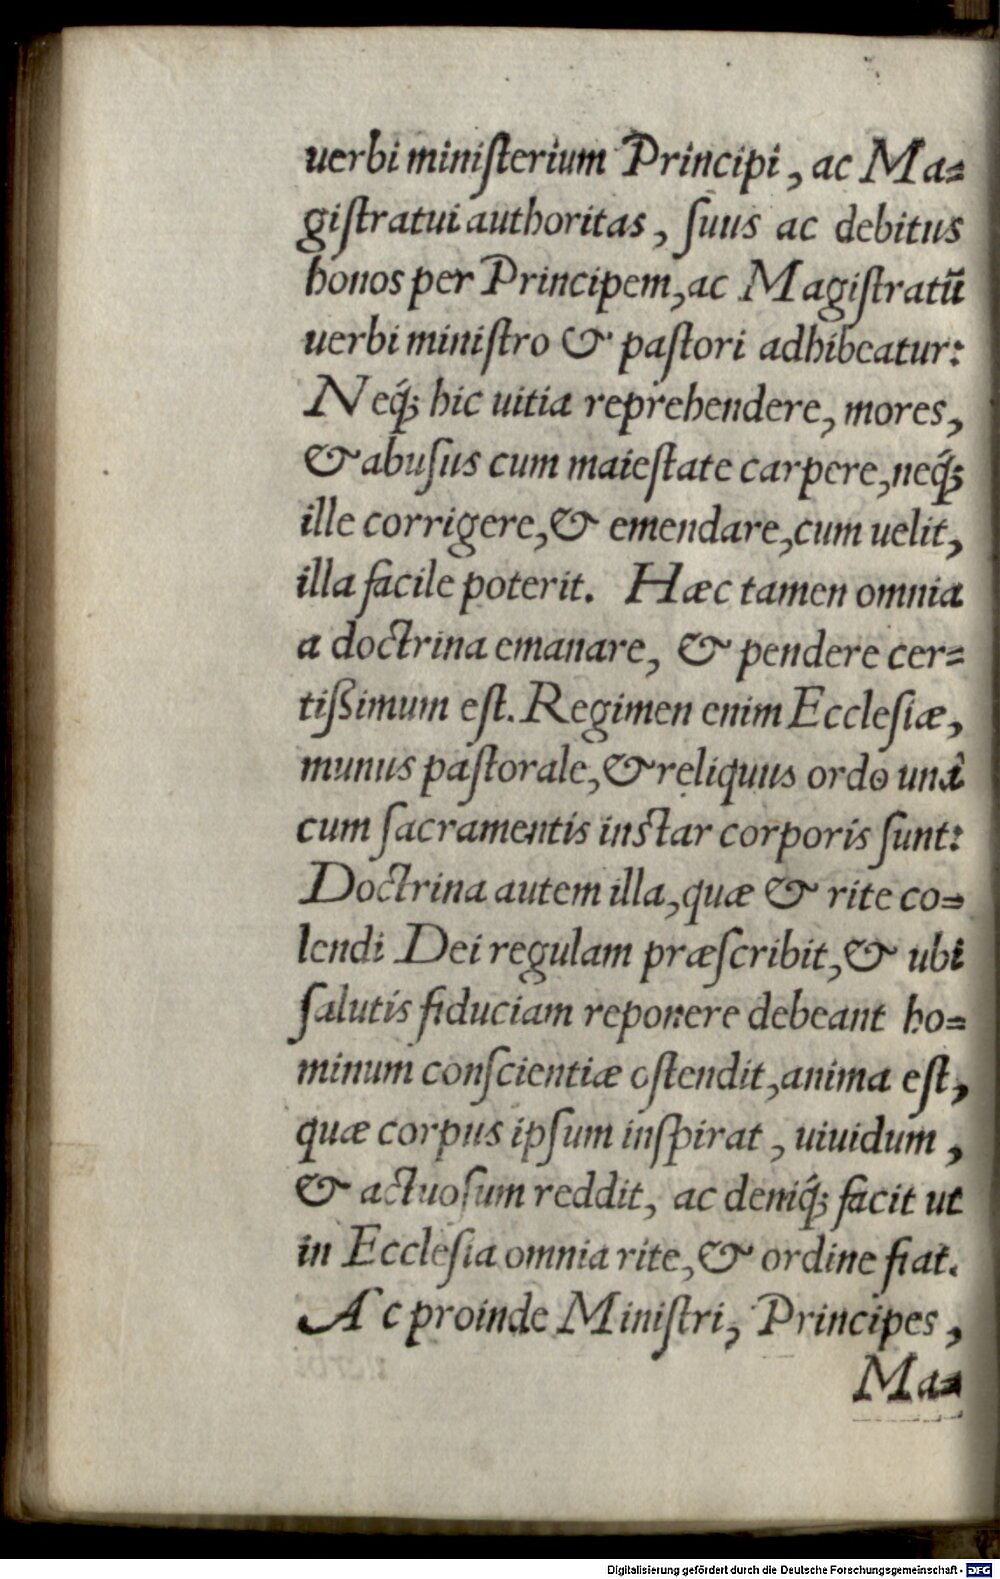 uerbi miniſterium Principi, ac Ma⸗
giſtratui authoritas, ſuus ac debitus
honos per Principem, ac Magiſtratū
uerbi miniſtro & paſtori adhibeatur:
Neq́; hic uitia reprehendere, mores,
& abuſus cum maieſtate carpere, neq́;
ille corrigere, & emendare, cum uelit,
illa facile poterit. Hæc tamen omnia
a doctrina emanare, & pendere cer⸗
tiſſimum eſt. Regimen enim Eccleſiæ,
munus paſtorale, & reliquus ordo unà
cum ſacramentis inſtar corporis ſunt:
Doctrina autem illa, quæ & rite co⸗
lendi Dei regulam præſcribit, & ubi
ſalutis fiduciam reponere debeant ho⸗
minum conſcientiæ oſtendit, anima eſt,
quæ corpus ipſum inſpirat, uiuidum,
& actuoſum reddit, ac deniq́; facit ut
in Eccleſia omnia rite, & ordine fiat.
Ac proinde Miniſtri, Principes,
Ma⸗
Digitalisierung gefördert durch die Deutsche Forschungsgemeinschaft - DFG